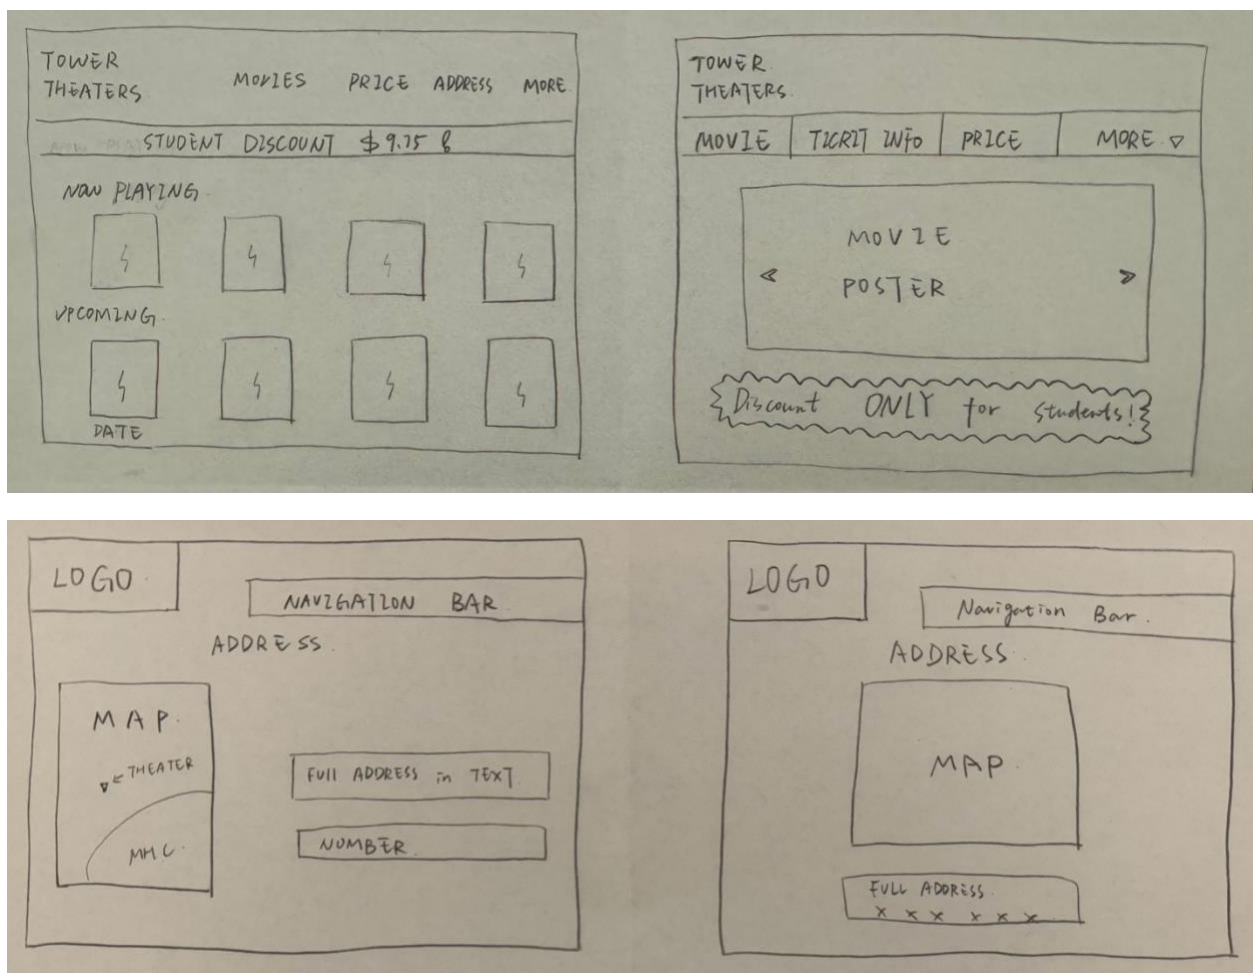 TOWER
THEATERS.
MOVIES PRICE ADDRESS MORE
STUDENT DISCOUNT $9.75
NOW PLAYING.
UPCOMING.
DATE
TOWER
THEATERS.
MOVIE TICRIT INFO PRICE MORE ▽
MOVIE
POSTER
Discount ONLY for students!
LOGO
NAVIGATION BAR
ADDRESS.
MAP.
THEATER
MHC.
FUll ADDRESS in TEXT
NUMBER
LOGO
Navigation Bar.
ADDRESS.
MAP
FULL ADDRESS.
x x x x x x